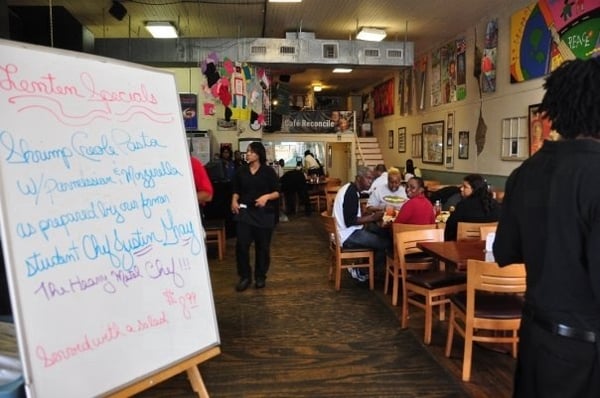 Lenten Specials
Shrimp Creole Pasta
w/ Parmesian & Mozzrella
as prepared by our former
student Chef Justin Ghay
The Heavy Metal Chef!!!
$8.99
Serverd with a salad
Café Reconcile
PEACE